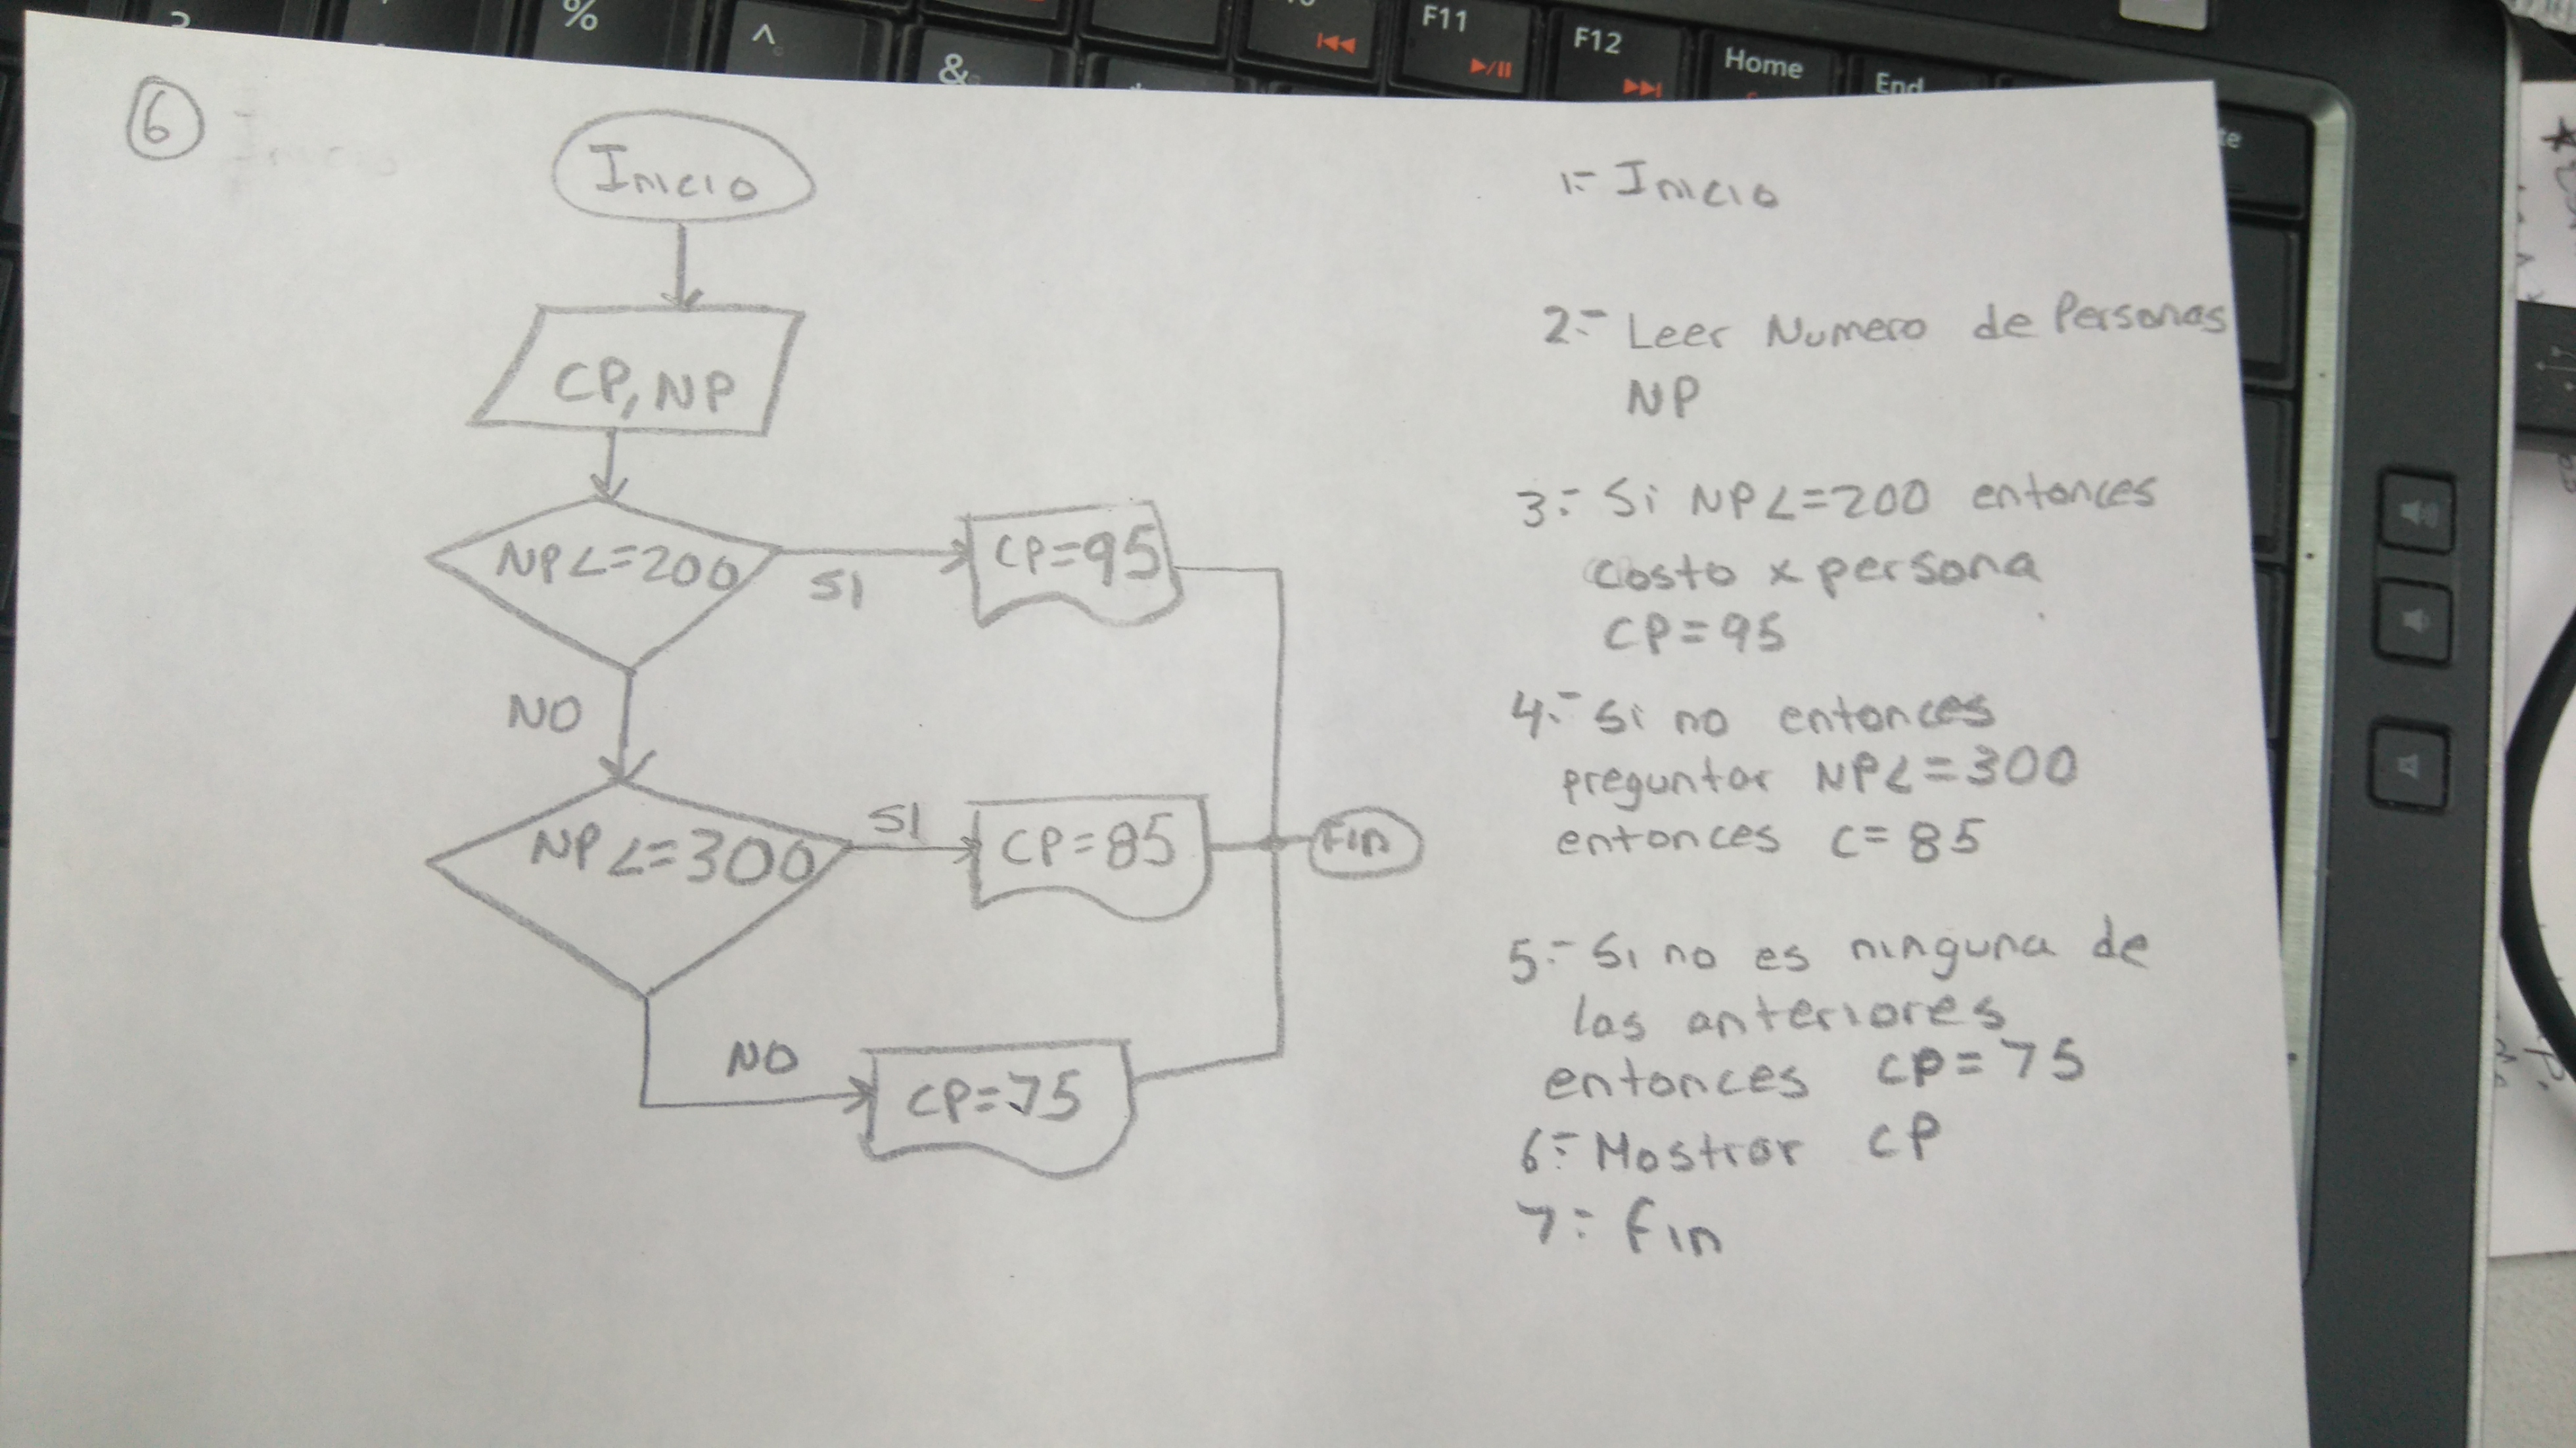 6
Inicio
CP, NP
NP<=200
SI
CP=95
NO
NP<=300
SI
CP=85
NO
CP=75
Fin
1.- Inicio
2.- Leer Numero de Personas
NP
3.- Si NP<=200 entonces
Costo x persona
CP=95
4.- Si no entonces
preguntar NP<=300
entonces C=85
5.- Si no es ninguna de
las anteriores
entonces CP=75
6.- Mostrar CP
7.- fin
F11
F12
Home
End
%
^
&